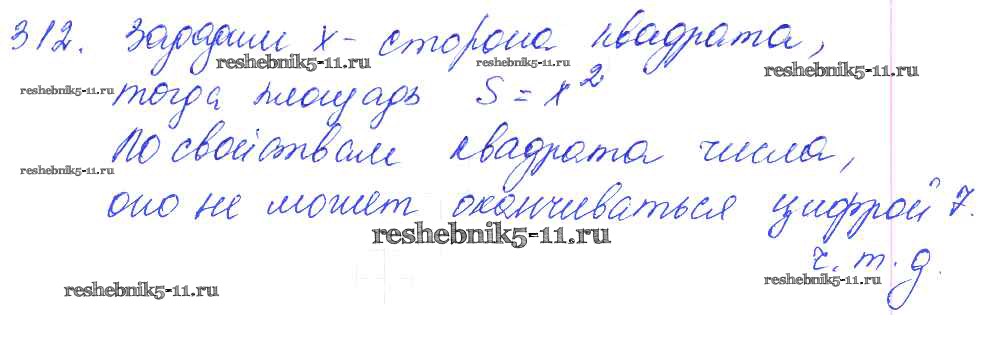 312. Зададим x - сторона квадрата,
reshebnik5-11.ru reshebnik5-11.ru reshebnik5-11.ru
reshebnik5-11.ru тогда площадь S = x²
По свойствам квадрата числа,
reshebnik5-11.ru
оно не может оканчиваться цифрой 7.
reshebnik5-11.ru
ч. т. д.
reshebnik5-11.ru reshebnik5-11.ru